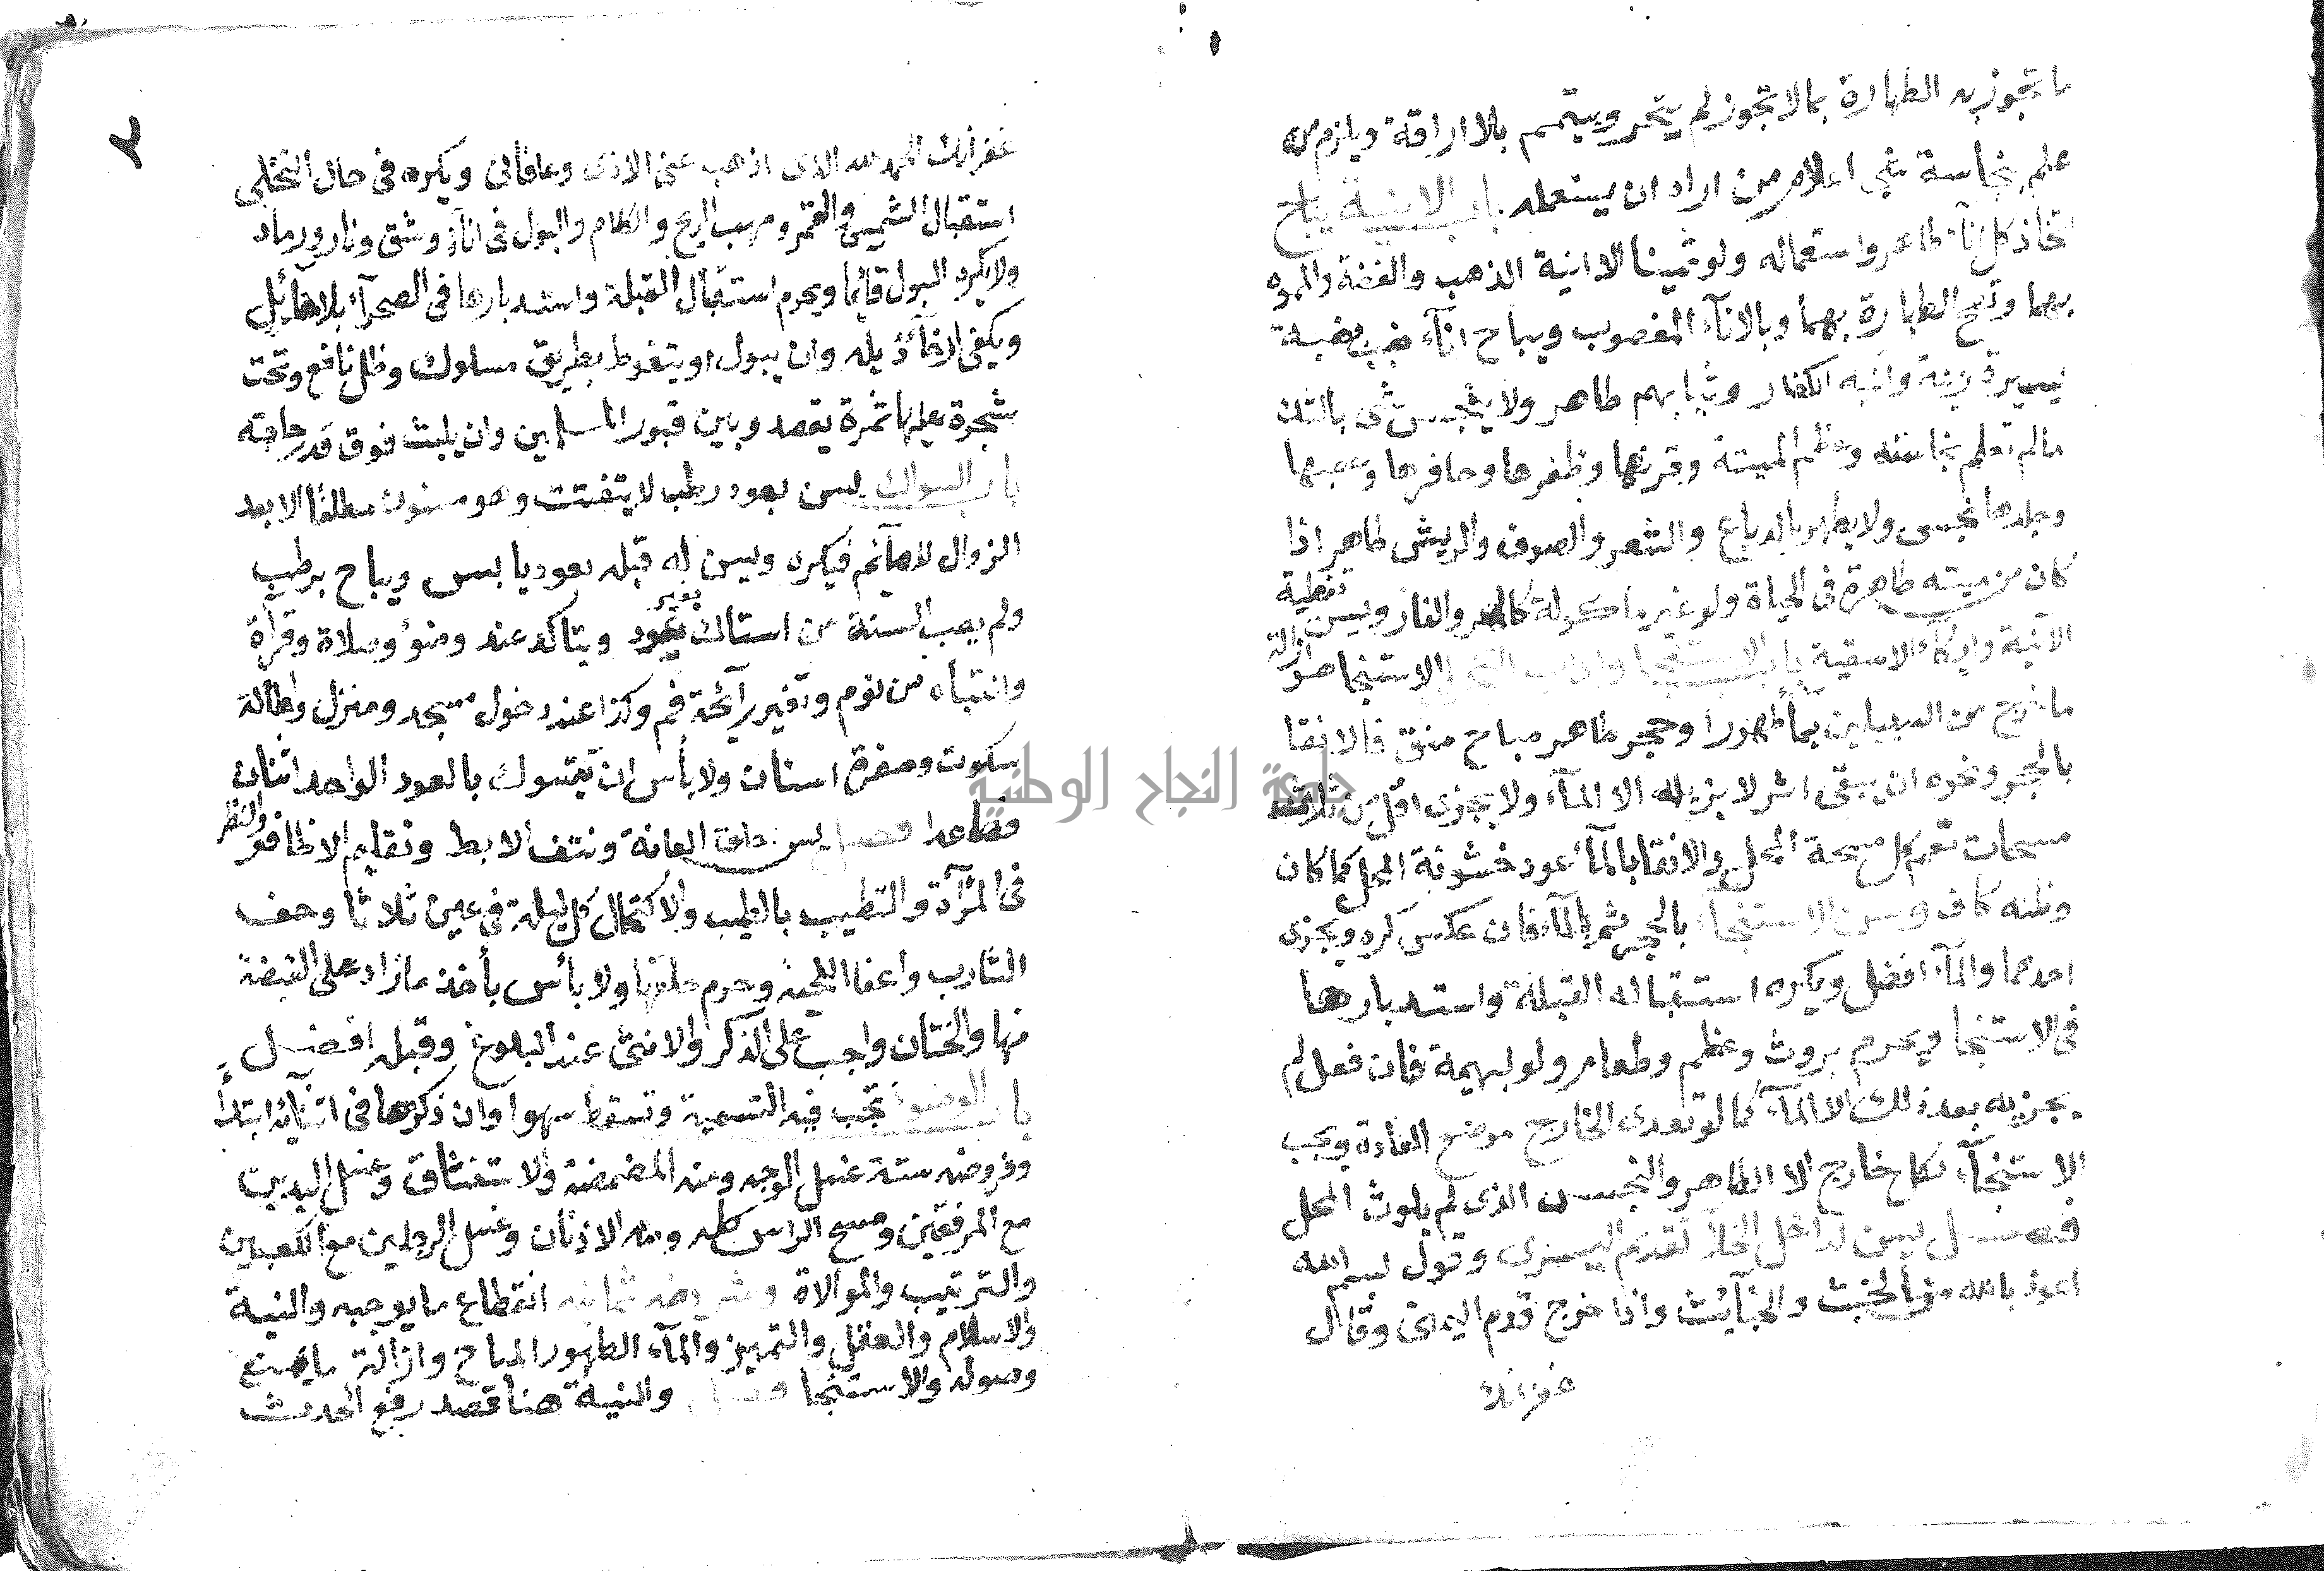 ما تجوز به الطهارة بما لا تجوز لم يتحر ويتيمم بلا اراقة ويلزم من
علم بنجاسة شي اعلام من اراد ان يستعمله باب الانية يباح
اتخاذ كل انآء طاهر واستعماله ولو ثمينا الا انية الذهب والفضة والمموه
بهما وتصح الطهارة بهما وبالانآء المغصوب ويباح انآء ضبب بضبة
يسيرة وانيه الكفار وثيابهم طاهر ولا ينجس شى بالشك
مالم تعلم نجاسته وعظم الميتة وقرنها وظفرها وحافرها وعصبها
وجلدها نجس ولا يطهر بالدباغ والشعر والصوف والريش طاهر اذا
كان من ميته طاهرة فى الحياة ولو غير ماكولة كالهر والفار ويسن تغطية
الآنية وايكاء الاسقية باب الاستنجا واداب التخلي الاستنجا هو ازالة
ما خرج من السبيلين بمآء طهورا وحجر طاهر مباح منق فالانقا
بالحجر ونحوه ان يبقى اثر لا يزيله الا المآء ولا يجزى اقل من ثلاث
مسحات تعم كل مسحة المحل والانقا بالمآء عود خشونة المحل كما كان
وظنه كاف ويسن الاستنجآء بالحجر ثم بالمآء فان عكس كره ويجزى
احدهما والمآء افضل ويكره استقباله القبلة واستدبارها
فى الاستنجا ويحرم بروث وعظم وطعام ولو لبهيمة فان فعل لم
يجزيه بعد ذلك الا المآء كما لو تعدى الخارج موضع العادة ويجب
الاستنجآء لكل خارج الا الطاهر والنجس الذى لم يلوث المحل
فصل يسن لداخل الخلآ تقديم اليسرى وقول بسم الله
اعوذ بالله من الخبث والخبآيث واذا خرج قدم اليمنى وقال
غفرانك
غفرانك الحمد لله الذى اذهب عنى الاذى وعافانى ويكره فى حال التخلى
استقبال الشمس والقمر ومهب الريح والكلام والبول فى انآء وشق ونار ورماد
ولا يكره البول قائما ويحرم استقبال القبلة واستدبارها فى الصحرآء بلا حائل
ويكفى ارخآء ذيله وان يبول او يتغوط بطريق مسلوك وظل نافع وتحت
شجرة عليها ثمرة يقصد وبين قبور المسلمين وان يلبث فوق قدر حاجته
باب السواك يسن بعود رطب لا يتفتت وهو مسنون مطلقا الا بعد
الزوال للصآئم فيكره ويسن له قبله بعود يابس ويباح برطب
ولم يصب السنة من استاك بغير عود ويتاكد عند وضوء وصلاة وقرأة
وانتباه من نوم وتغير رآئحة فم وكذا عند دخول مسجد ومنزل واطالة
سكوت وصفرة اسنان ولا بأس ان يتسوك بالعود الواحد اثنان
فصاعدا فصل يسن حلق العانة ونتف الابط وتقليم الاظافر والنظر
فى المرآة والتطيب بالطيب والاكتحال كل ليلة فى عين ثلاثا وحف
الشارب واعفا اللحية وحرم حلقها ولا بأس بأخذ مازاد على القبضة
منها والختان واجب على الذكر والانثى عند البلوغ وقبله افضل
باب الوضوء تجب فيه التسمية وتسقط سهوا وان ذكرها فى اثنآئه ابتدأ
وفروضه ستة غسل الوجه ومنه المضمضة والاستنشاق وغسل اليدين
مع المرفقين ومسح الراس كله ومنه الاذنان وغسل الرجلين مع الكعبين
والترتيب والموالاة وشروطه ثمانيه انقطاع ما يوجبه والنية
والاسلام والعقل والتمييز والمآء الطهور المباح وازالة ما يمنع
وصوله والاستنجا فصل والنية هنا قصد رفع الحدث
جامعة النجاح الوطنية